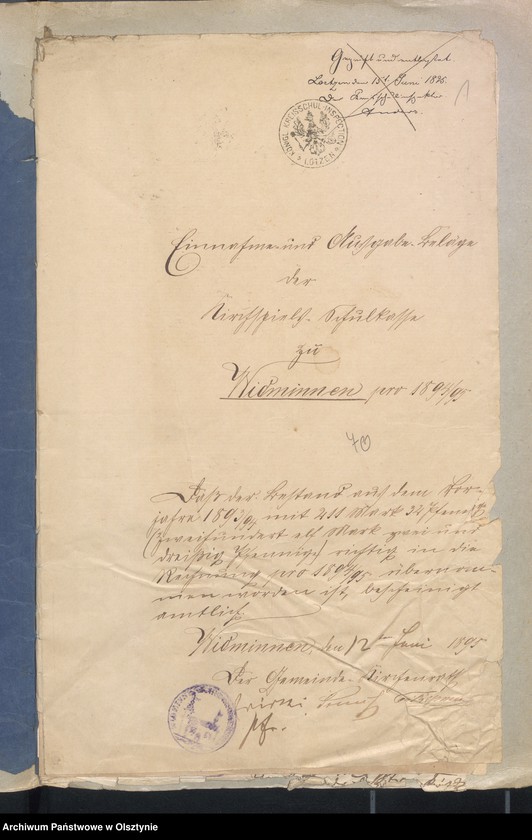 Geprüft und entlastet.
Loetzen den 15t Juni 1896.
Der Kreisschulinspektor
Anders.
KÖNIGL. KREISSCHUL-INSPECTION
LÖTZEN
Einnahme- und Ausgabe-Beläge
der
Kirchspiels-Schulkasse
zu
Widminnen pro 1894/95
70
Daß der Bestand aus dem Vor-
jahre 1893/94 mit 211 Mark 32 Pfennig
(zweihundert elf Mark zwei und
dreißig Pfennige) richtig in die
Rechnung pro 1894/95 übernom-
men worden ist, bescheinigt
amtlich
Widminnen, den 12t Juni 1895
Der Gemeinde-Kirchenrath
Pfr.
Archiwum Państwowe w Olsztynie